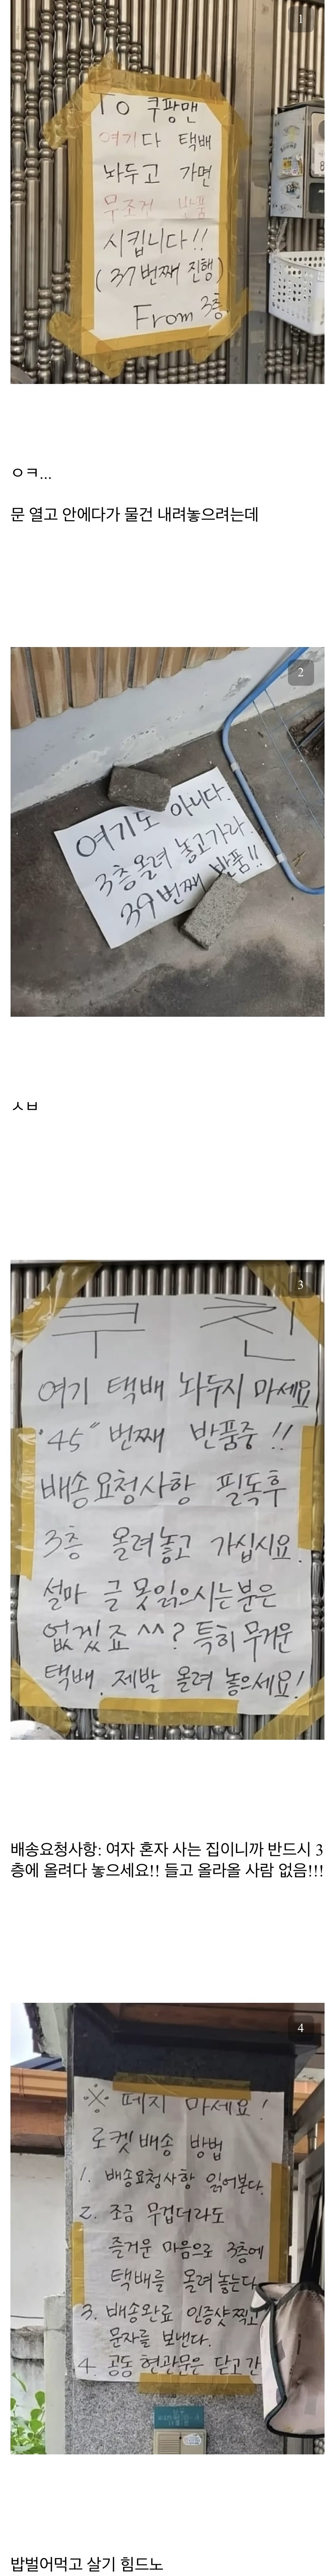 1
To 쿠팡맨
여기다 택배
놔두고 가면
무조건 반품
시킵니다!!
(37번째 진행)
From 3층
ㅇㅋ...
문 열고 안에다가 물건 내려놓으려는데
2
여기도 아니다.
3층올려 놓고가라.
39번째 반품!!
ㅅㅂ
3
쿠 친
여기 택배 놔두지 마세요
"45" 번째 반품중 !!
배송요청사항 필독후
3층 올려놓고 가십시요.
설마 글 못읽으시는분은
없겠죠 ^^? 특히 무거운
택배. 제발 올려 놓으세요!
배송요청사항: 여자 혼자 사는 집이니까 반드시 3
층에 올려다 놓으세요!! 들고 올라올 사람 없음!!!
4
※ 떼지 마세요!
로켓배송 방법
1. 배송요청사항 읽어본다.
2. 조금 무겁더라도
즐거운 마음으로 3층에
택배를 올려놓는다
3. 배송완료 인증샷찍고
문자를 보낸다.
4. 공동현관문은 닫고간
밥벌어먹고 살기 힘드노